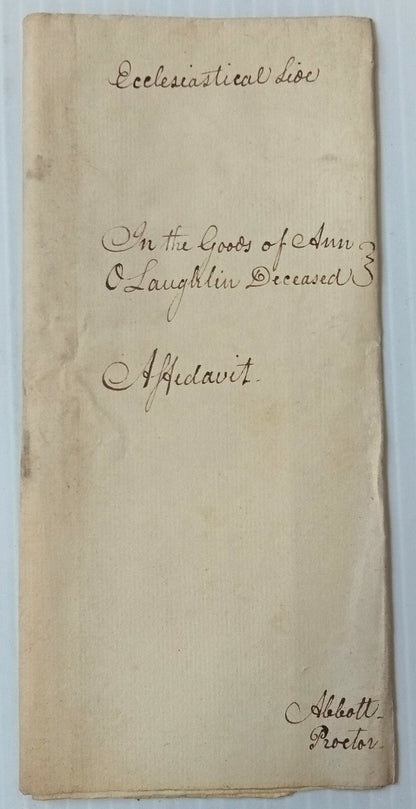 Ecclesiastical Side
In the Goods of Ann
O Laughlin Deceased }
Affedavit.
Abbott.
Proctor.